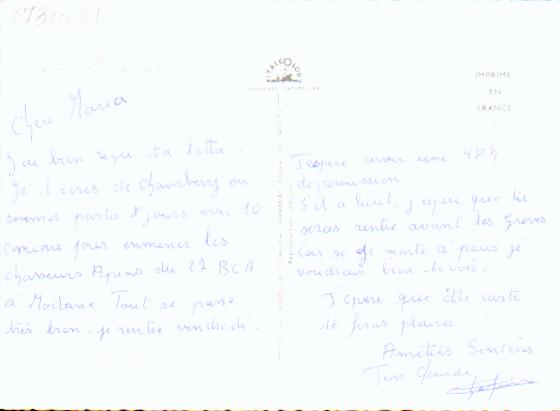 Chere Maria
J'ai bien reçu ta lettre.
Je t'ecris de Chambery ou
sommes partis 8 jours avec 10
camions pour emmener les
chasseurs Alpins du 27 BCA
à Modane. Tout se passe
très bien, je rentre vendredi.
ITALCOLOR
COULEURS NATURELLES
IMPRIME
EN
FRANCE
Reproduction interdite
J'espere avoir une 48 h
de permission
S'il a lieut, j'espere que tu
seras rentré avant les Greves
Car si je monte à paris je
voudrais bien te voir.
J'espere que cette carte
te feras plaisir
Amitiés Sinceres
Jean Claude